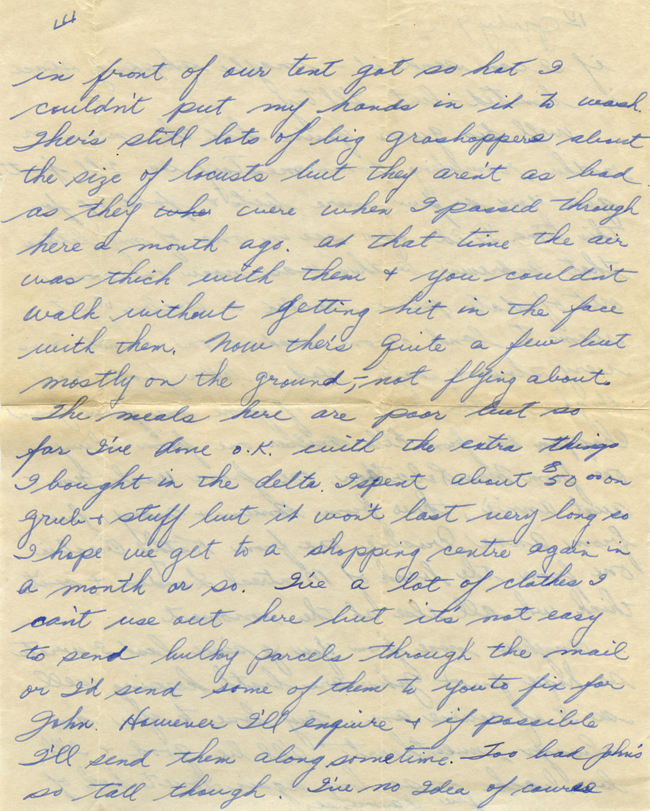 in front of our tent got so hot I
couldn't put my hands in it to wash.
Ther's still lots of big grashoppers about
the size of locusts but they aren't as bad
as they were when I passed through
here a month ago. At that time the air
was thick with them + you couldn't
walk without getting hit in the face
with them. Now ther's quite a few but
mostly on the ground, - not flying about.
The meals here are poor but so
far I've done o.K. with the extra things
I bought in the delta. I spent about $50 00 on
grub + stuff but it won't last very long so
I hope we get to a shopping centre again in
a month or so. I've a lot of clothes I
can't use out here but it's not easy
to send bulky parcels through the mail
or I'd send some of them to you to fix for
John. However I'll enquire + if possible
I'll send them along sometime. Too bad John's
so tall though. I've no Idea of course